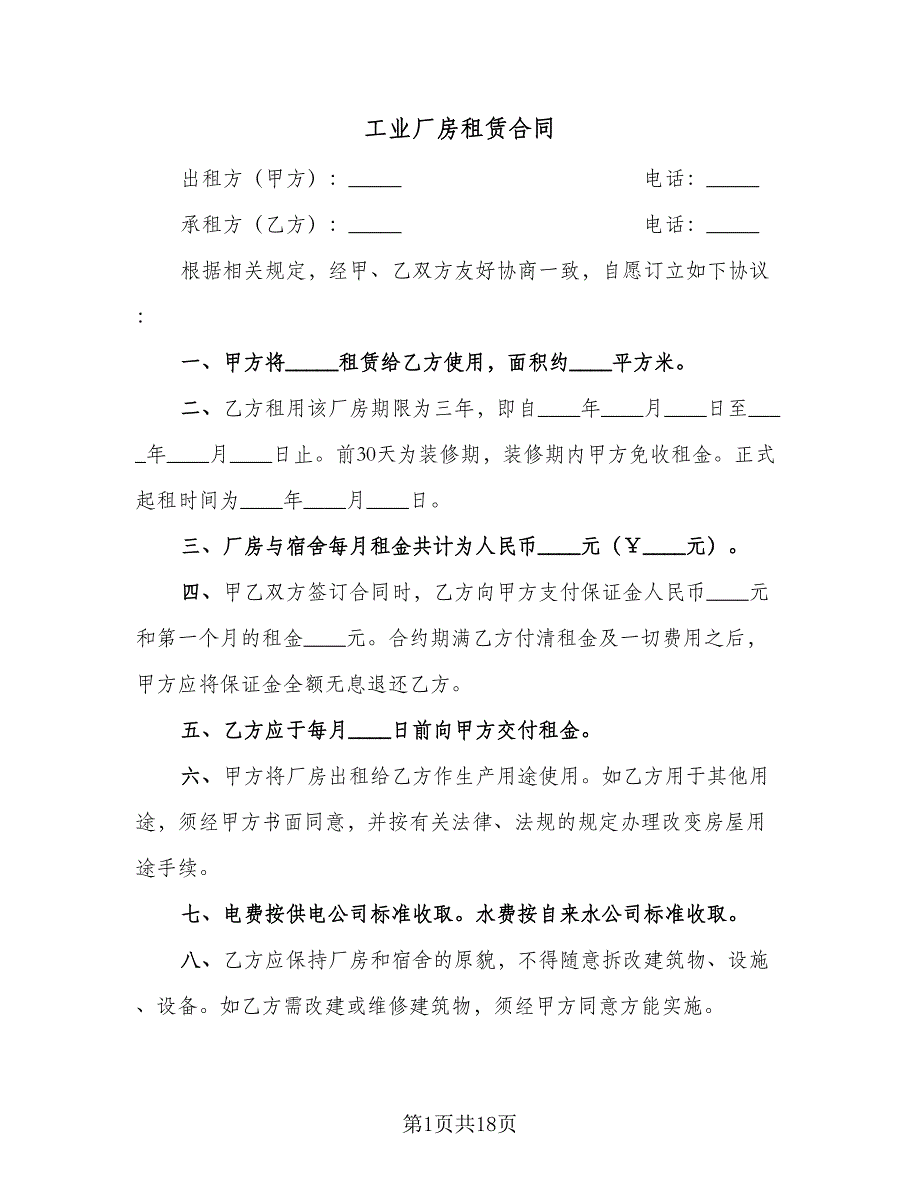 工业厂房租赁合同
出租方（甲方）：_____ 电话：_____
承租方（乙方）：_____ 电话：_____
根据相关规定，经甲、乙双方友好协商一致，自愿订立如下协议
：
一、甲方将_____租赁给乙方使用，面积约____平方米。
二、乙方租用该厂房期限为三年，即自____年____月____日至___
_年____月____日止。前30天为装修期，装修期内甲方免收租金。正式
起租时间为____年____月____日。
三、厂房与宿舍每月租金共计为人民币____元（￥____元）。
四、甲乙双方签订合同时，乙方向甲方支付保证金人民币____元
和第一个月的租金____元。合约期满乙方付清租金及一切费用之后，
甲方应将保证金全额无息退还乙方。
五、乙方应于每月____日前向甲方交付租金。
六、甲方将厂房出租给乙方作生产用途使用。如乙方用于其他用
途，须经甲方书面同意，并按有关法律、法规的规定办理改变房屋用
途手续。
七、电费按供电公司标准收取。水费按自来水公司标准收取。
八、乙方应保持厂房和宿舍的原貌，不得随意拆改建筑物、设施
、设备。如乙方需改建或维修建筑物，须经甲方同意方能实施。
第1页共18页